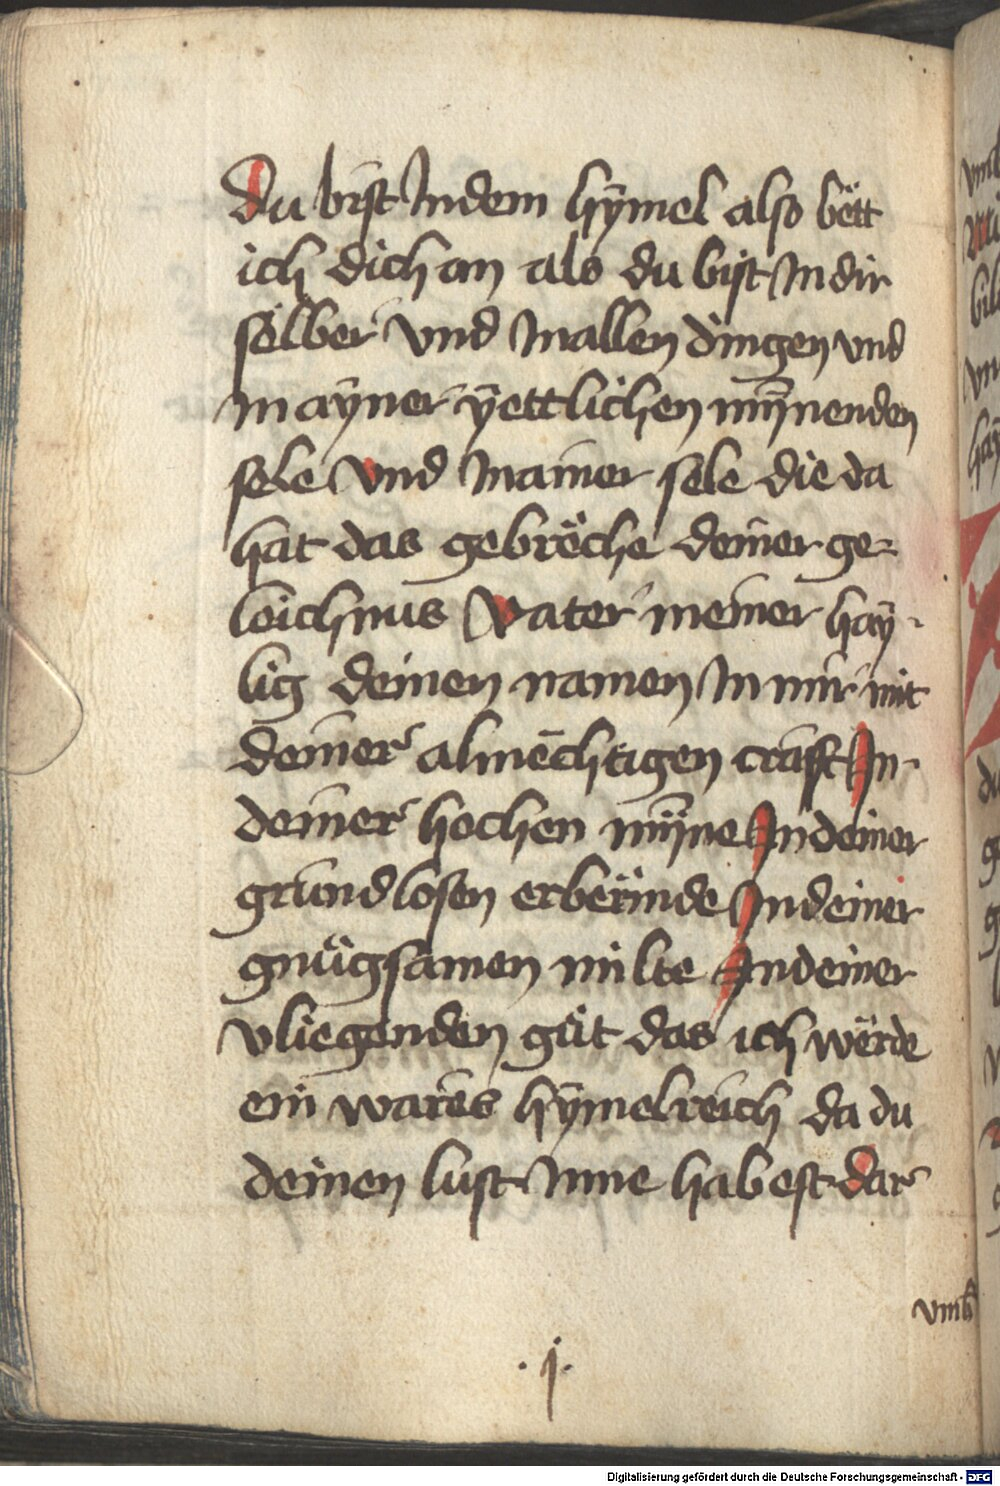 Du bist Indem hÿmel also bëtt
ich dich an als du bist In dir
sëlber vnd In allen dingen vnd
In aÿner ÿettlichen mÿnenden
sele vnd In ainer sele die da
hat das gebrëche deiner ge-
leichnus Vater meiner haÿ-
lig deinen namen In mir mit
deiner almëchtigen crafft In
deiner hochen mÿne In deiner
grundlosen erbermde In deiner
gnügsamen milte In deiner
vliegenden güt das ich wërde
ein wares hÿmelreich da du
deinen lust Inne habest dar
vmb
. j .
Digitalisierung gefördert durch die Deutsche Forschungsgemeinschaft - DFG